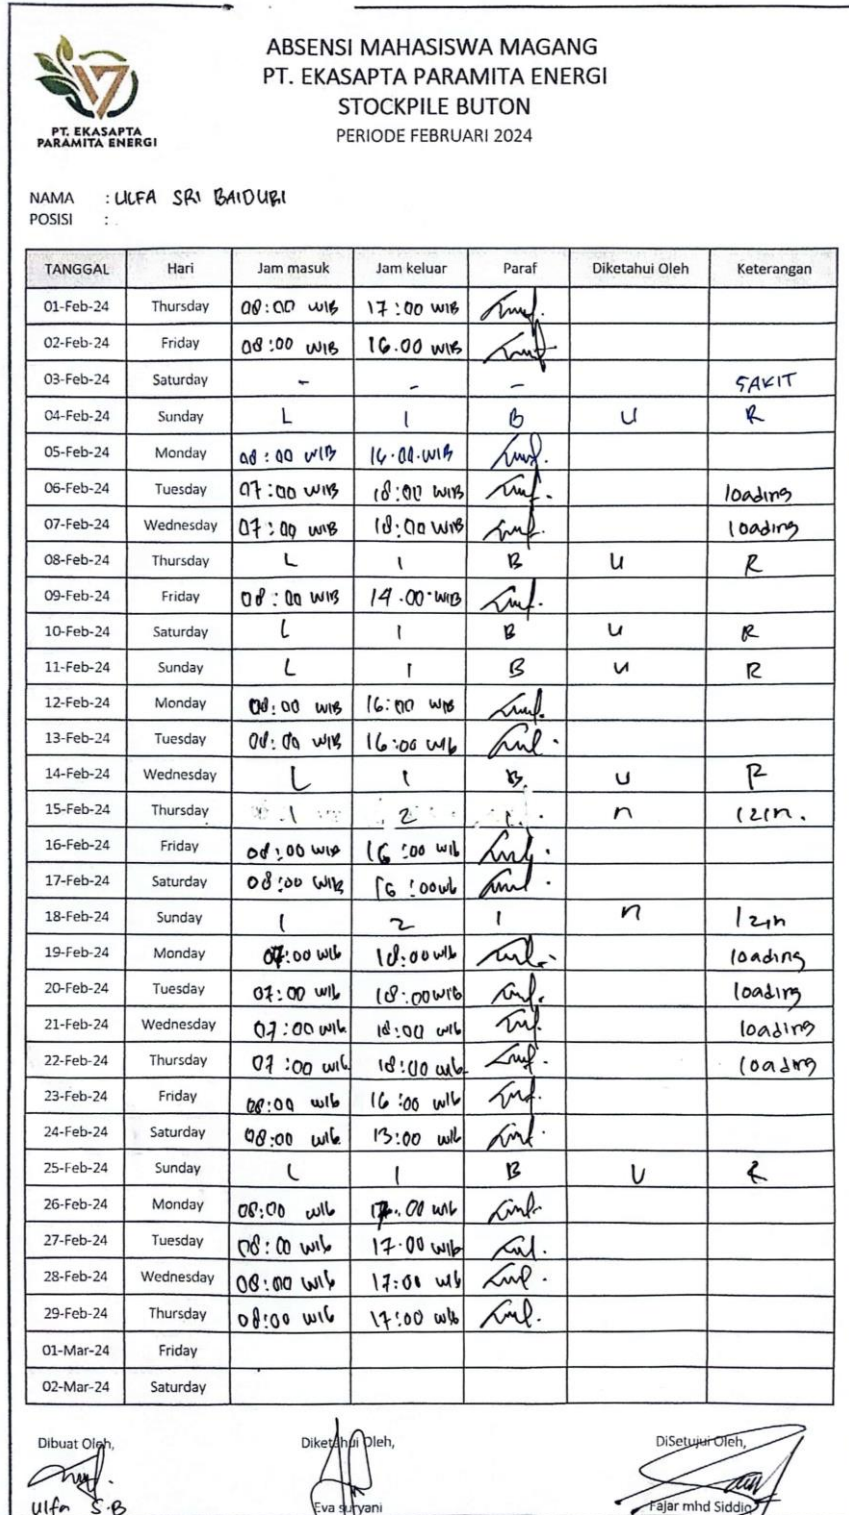 ABSENSI MAHASISWA MAGANG
PT. EKASAPTA PARAMITA ENERGI
STOCKPILE BUTON
PERIODE FEBRUARI 2024
PT. EKASAPTA
PARAMITA ENERGI
NAMA : ULFA SRI BAIDURI
POSISI :
TANGGAL Hari Jam masuk Jam keluar Paraf Diketahui Oleh Keterangan
01-Feb-24 Thursday 08:00 WIB 17:00 WIB
02-Feb-24 Friday 08:00 WIB 16.00 WIB
03-Feb-24 Saturday - - - SAKIT
04-Feb-24 Sunday L I B U R
05-Feb-24 Monday 08:00 WIB 16.00.WIB
06-Feb-24 Tuesday 07:00 WIB 18:00 WIB loading
07-Feb-24 Wednesday 07:00 WIB 18:00 WIB loading
08-Feb-24 Thursday L I B U R
09-Feb-24 Friday 08:00 WIB 14.00.WIB
10-Feb-24 Saturday L I B U R
11-Feb-24 Sunday L I B U R
12-Feb-24 Monday 08:00 WIB 16:00 WIB
13-Feb-24 Tuesday 08:00 WIB 16:00 wib
14-Feb-24 Wednesday L I B U R
15-Feb-24 Thursday I Z I n Izin.
16-Feb-24 Friday 08:00 WIB 16:00 wib
17-Feb-24 Saturday 08:00 WIB 16:00 wib
18-Feb-24 Sunday I Z I n Izin
19-Feb-24 Monday 07:00 wib 18:00 wib loading
20-Feb-24 Tuesday 07:00 wib 18:00 wib loading
21-Feb-24 Wednesday 07:00 wib 18:00 wib loading
22-Feb-24 Thursday 07:00 wib 18:00 wib loading
23-Feb-24 Friday 08:00 wib 16:00 wib
24-Feb-24 Saturday 08:00 wib 13:00 wib
25-Feb-24 Sunday L I B U R
26-Feb-24 Monday 08:00 wib :00 wib
27-Feb-24 Tuesday 08:00 wib 17.00 wib
28-Feb-24 Wednesday 08:00 wib 17:00 wib
29-Feb-24 Thursday 08:00 wib 17:00 wib
01-Mar-24 Friday
02-Mar-24 Saturday
Dibuat Oleh, Diketahui Oleh, DiSetujui Oleh,
Ulfa S.B Eva suryani Fajar mhd Siddiq